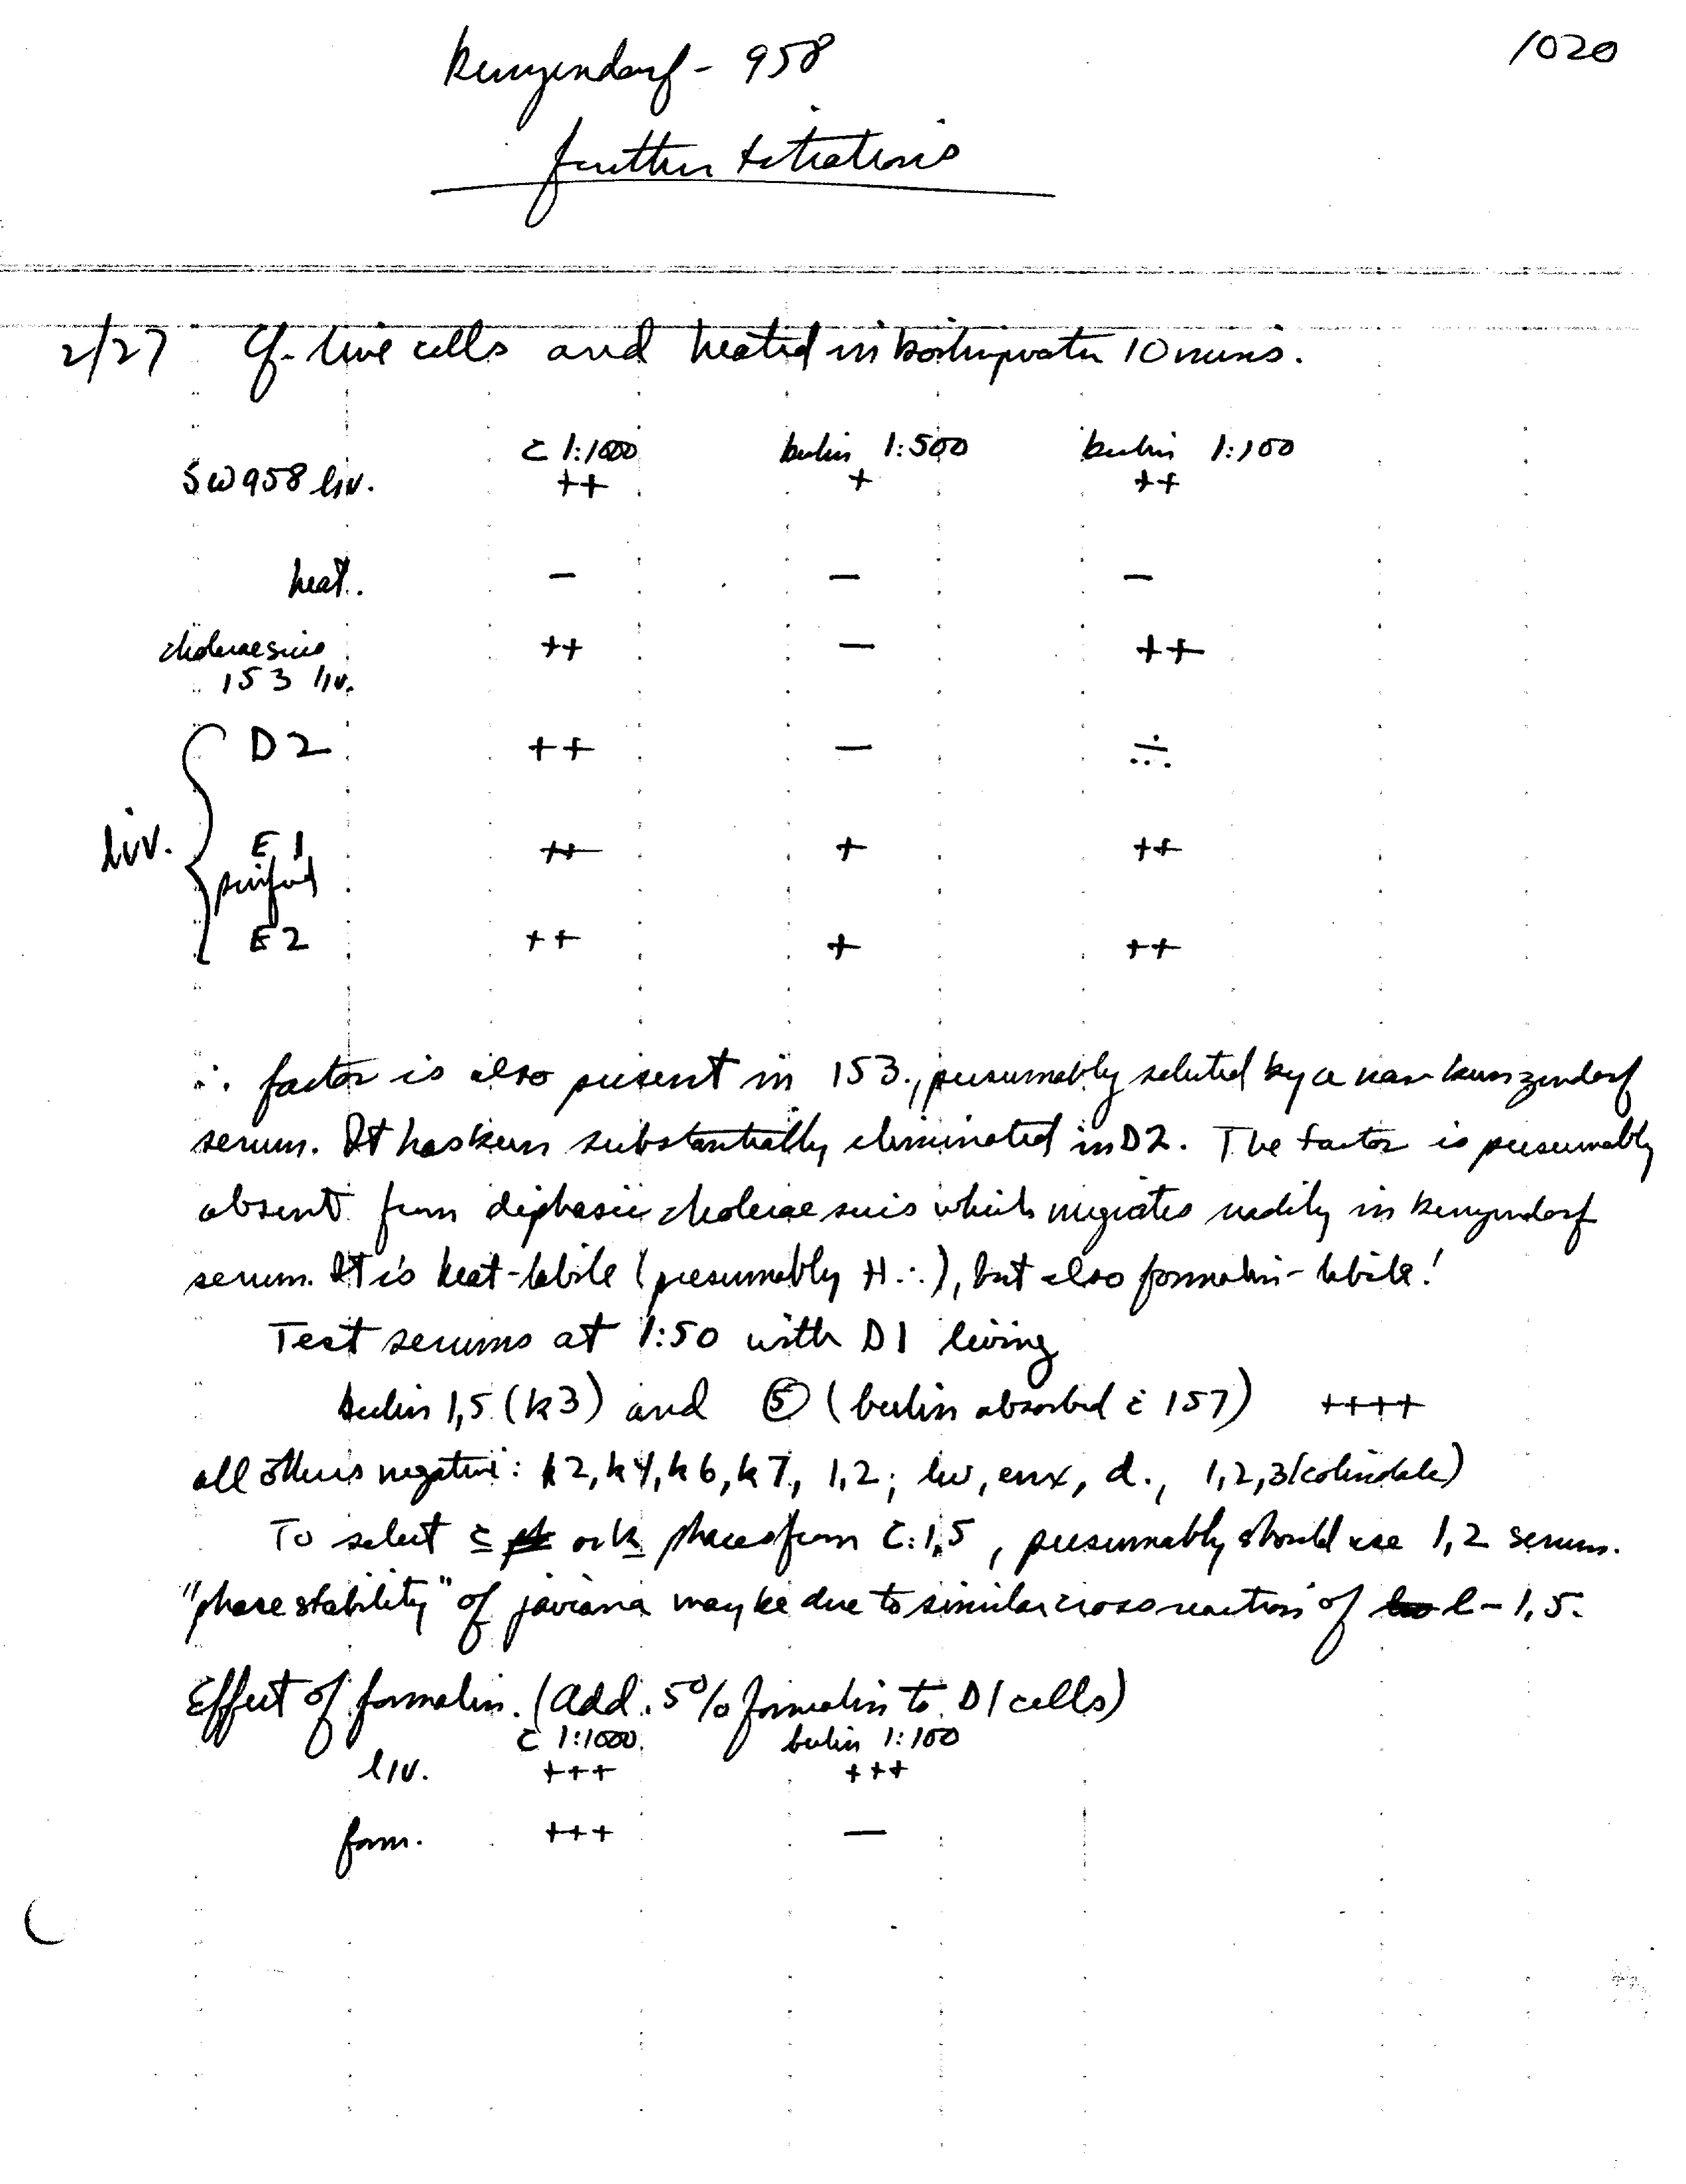 Kunzendorf - 958
1020
further titrations
2/27 Cf. live cells and heated in boiling water 10 mins.
c 1:1000 berlin 1:500 berlin 1:100
SW958 liv. ++ + ++
heat. — — —
cholerae suis ++ — ++
153 liv.
D2 ++ —
liv. E1 ++ + ++
purified
E2 ++ + ++
∴ factor is also present in 153., presumably selected by a kunzendorf
serum. It has been substantially eliminated in D2. The factor is presumably
absent from diphasic cholerae suis which migrates readily in kunzendorf
serum. It is heat-labile (presumably H ∴), but also formalin-labile!
Test serums at 1:50 with D1 living
berlin 1,5 (k3) and ⑤ (berlin absorbed c̄ 157) ++++
all others negative: k2, k4, k6, k7, 1,2; lw, enx, d., 1,2,3 (colindale)
To select c or k phases from C:1,5, presumably should use 1,2 serum.
"phase stability" of javiana may be due to similar cross reaction of l - 1,5.
Effect of formalin. (Add .5% formalin to D1 cells)
c 1:1000. berlin 1:100
liv. +++ +++
form. +++ —